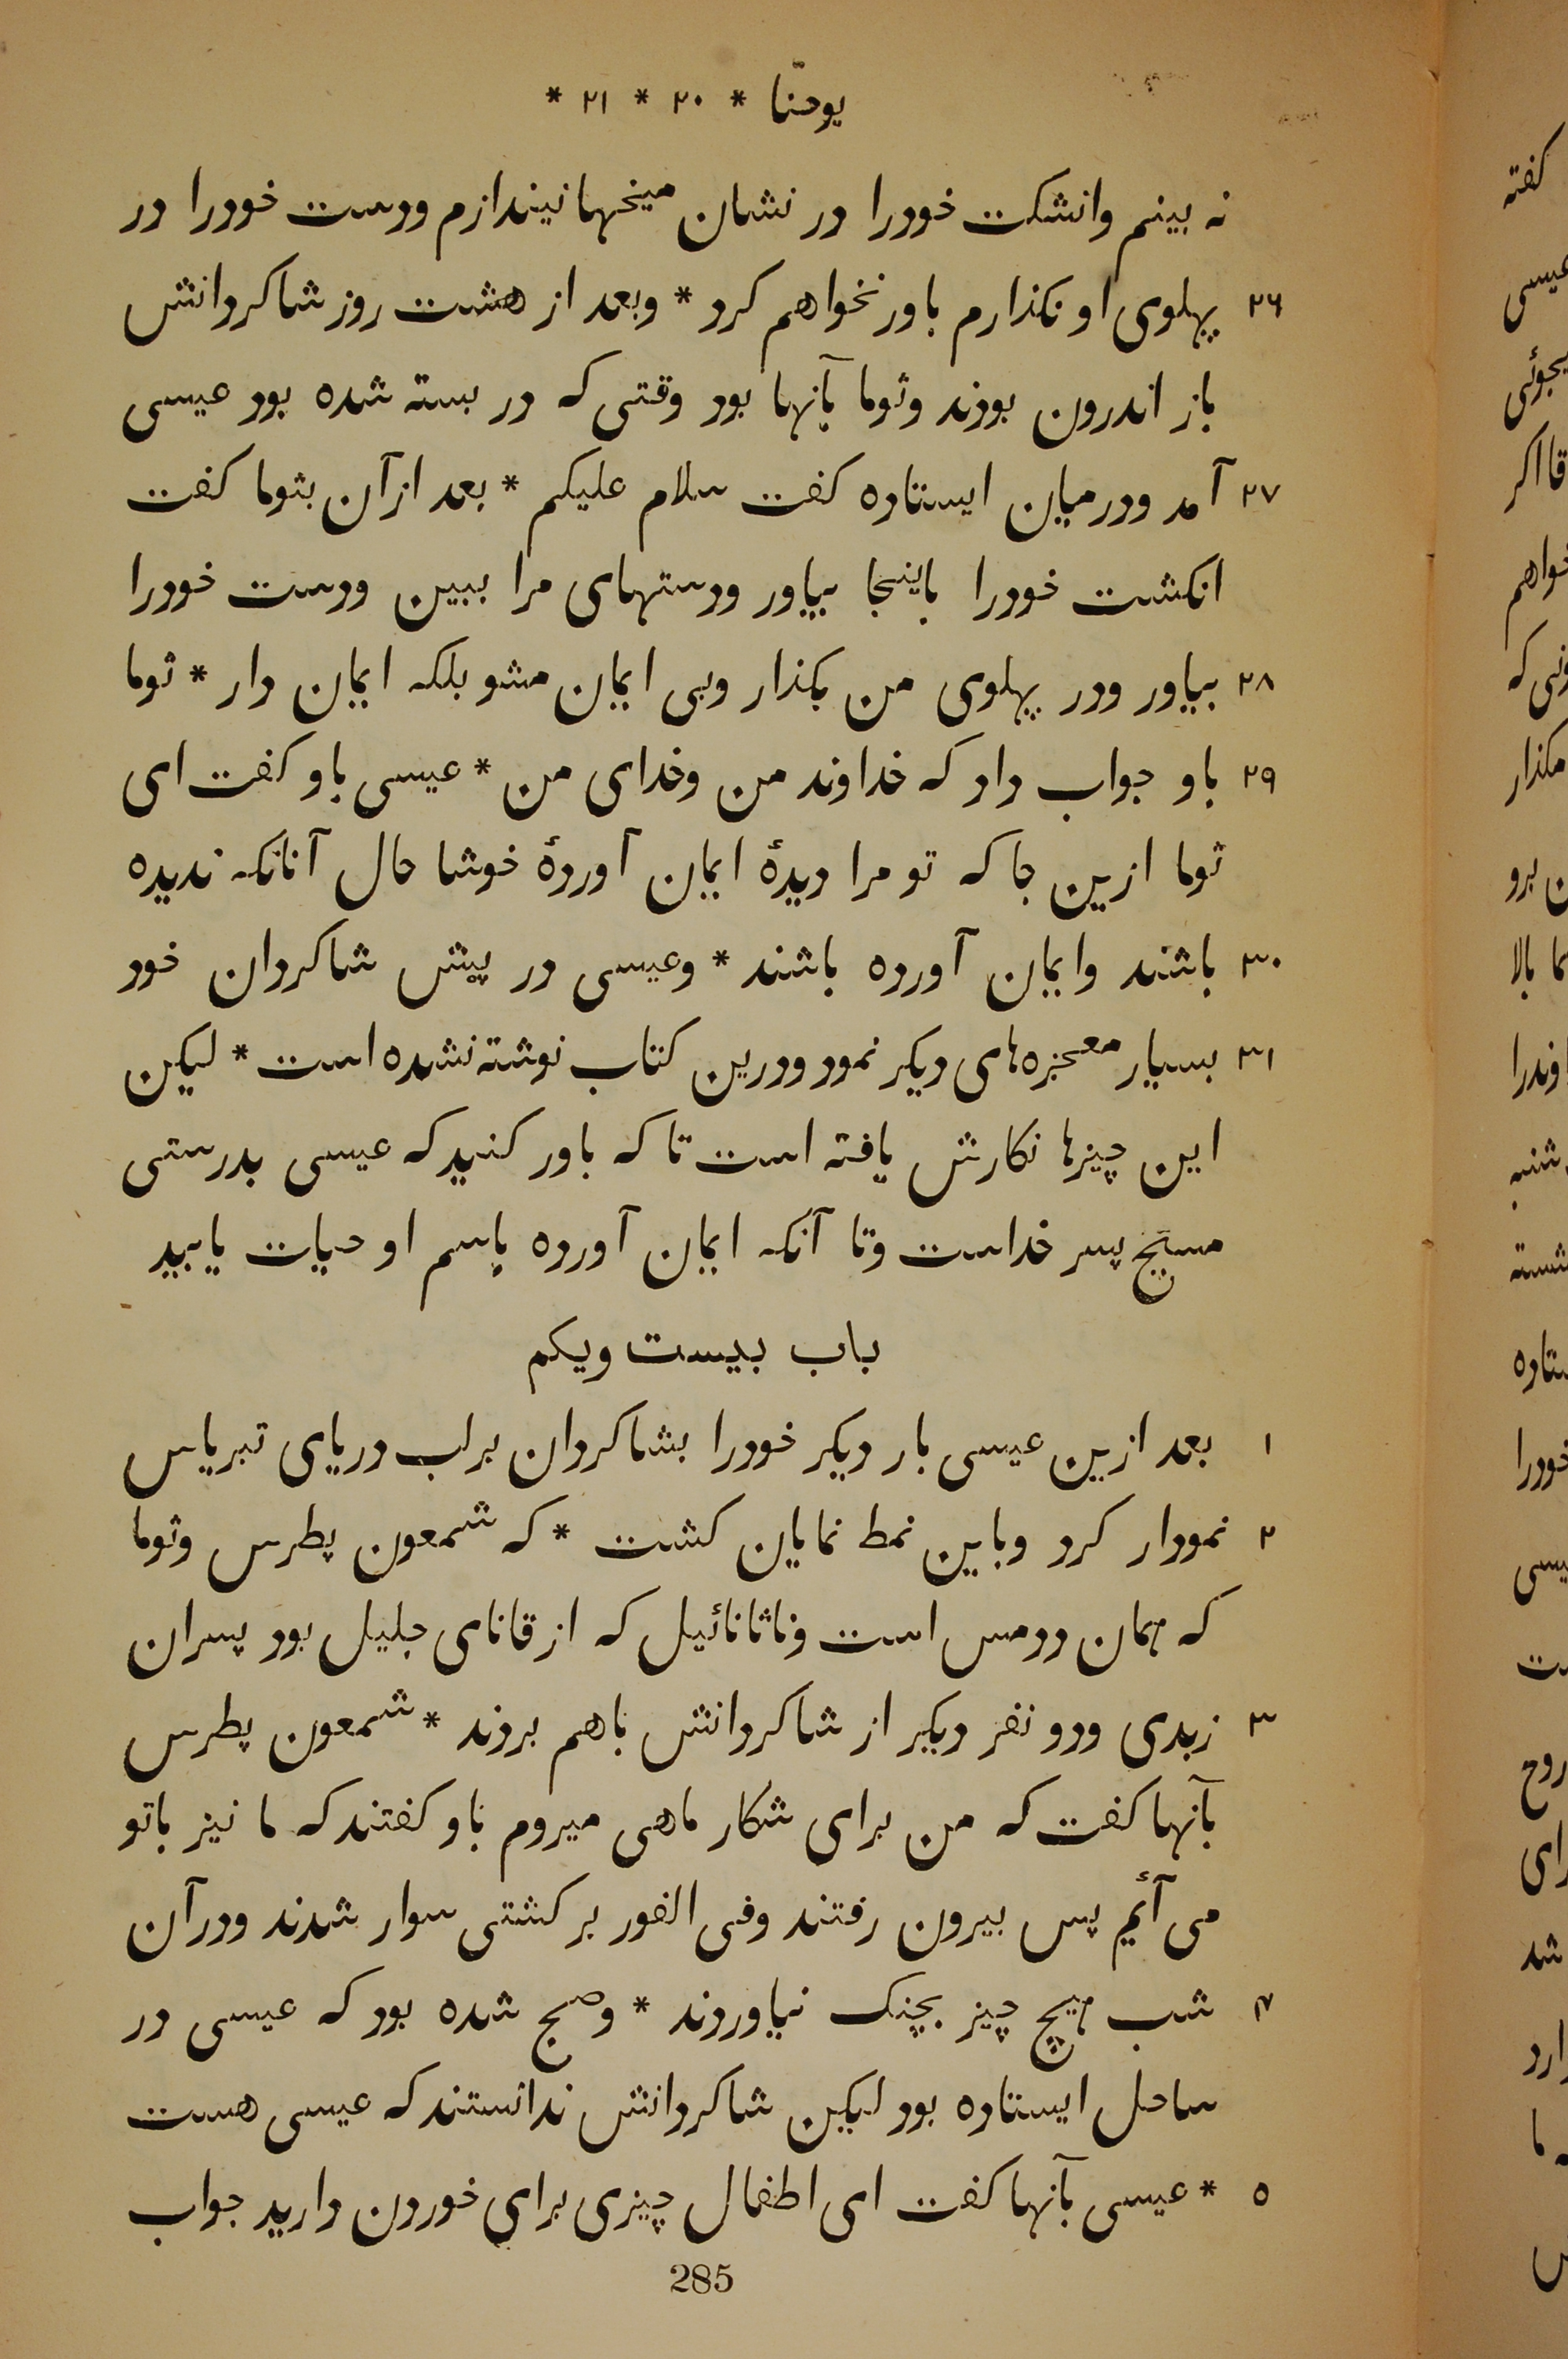 یوحنّا * ۲۰ * ۲۱ *
نه بینم وانشکت خودرا در نشان میخها نیندازم ودست خودرا در
۲۶ پهلوی او نکذارم باور نخواهم کرد * وبعد از هشت روز شاکردانش
باز اندرون بودند وثوما بآنها بود وقتی که در بسته شده بود عیسی
۲۷ آمد ودرمیان ایستاده کفت سلام علیکم * بعد ازآن بثوما کفت
انکشت خودرا باینجا بیاور ودستهای مرا ببین ودست خودرا
۲۸ بیاور ودر پهلوی من بکذار وبی ایمان مشو بلکه ایمان دار * ثوما
۲۹ باو جواب داد که خداوند من وخدای من * عیسی باو کفت ای
ثوما ازین جا که تو مرا دیدهٔ ایمان آوردهٔ خوشا حال آنانکه ندیده
۳۰ باشند وایمان آورده باشند * وعیسی در پیش شاکردان خود
۳۱ بسیار معجزه‌های دیکر نمود ودرین کتاب نوشته نشده است * لیکن
این چیزها نکارش یافته است تا که باور کنید که عیسی بدرستی
مسیح پسر خداست وتا آنکه ایمان آورده باسم او حیات یابید
باب بیست ویکم
۱ بعد ازین عیسی بار دیکر خودرا بشاکردان برلب دریای تبریاس
۲ نمودار کرد وباین نمط نمایان کشت * که شمعون پطرس وثوما
که همان ددمس است وناثانائیل که از قانای جلیل بود پسران
۳ زبدی ودو نفر دیکر از شاکردانش باهم بودند * شمعون پطرس
بآنها کفت که من برای شکار ماهی میروم باو کفتند که ما نیز باتو
می آئیم پس بیرون رفتند وفی الفور بر کشتی سوار شدند ودرآن
۴ شب هیچ چیز بچنک نیاوردند * وصبح شده بود که عیسی در
ساحل ایستاده بود لیکن شاکردانش ندانستند که عیسی هست
۵ * عیسی بآنها کفت ای اطفال چیزی برای خوردن دارید جواب
285